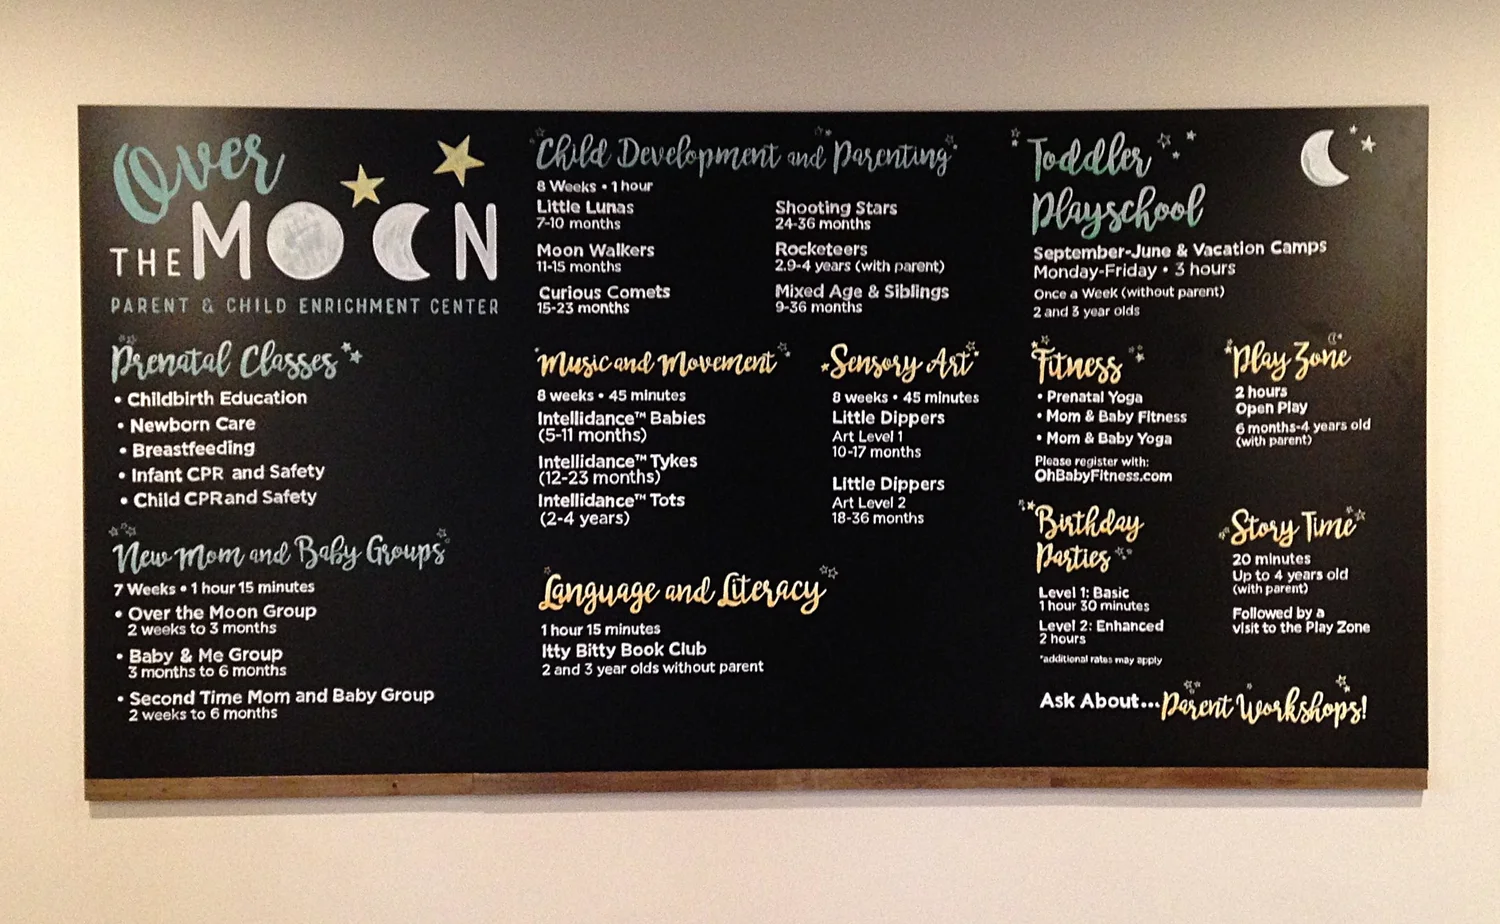 Over
THE MOON
PARENT & CHILD ENRICHMENT CENTER
Prenatal Classes
• Childbirth Education
• Newborn Care
• Breastfeeding
• Infant CPR and Safety
• Child CPR and Safety
New Mom and Baby Groups
7 Weeks • 1 hour 15 minutes
• Over the Moon Group
2 weeks to 3 months
• Baby & Me Group
3 months to 6 months
• Second Time Mom and Baby Group
2 weeks to 6 months
Child Development and Parenting
8 Weeks • 1 hour
Little Lunas
7-10 months
Moon Walkers
11-15 months
Curious Comets
15-23 months
Shooting Stars
24-36 months
Rocketeers
2.9-4 years (with parent)
Mixed Age & Siblings
9-36 months
Music and Movement
8 weeks • 45 minutes
Intellidance™ Babies
(5-11 months)
Intellidance™ Tykes
(12-23 months)
Intellidance™ Tots
(2-4 years)
Sensory Art
8 weeks • 45 minutes
Little Dippers
Art Level 1
10-17 months
Little Dippers
Art Level 2
18-36 months
Language and Literacy
1 hour 15 minutes
Itty Bitty Book Club
2 and 3 year olds without parent
Toddler
Playschool
September-June & Vacation Camps
Monday-Friday • 3 hours
Once a Week (without parent)
2 and 3 year olds
Fitness
• Prenatal Yoga
• Mom & Baby Fitness
• Mom & Baby Yoga
Please register with:
OhBabyFitness.com
Play Zone
2 hours
Open Play
6 months-4 years old
(with parent)
Birthday
Parties
Level 1: Basic
1 hour 30 minutes
Level 2: Enhanced
2 hours
*additional rates may apply
Story Time
20 minutes
Up to 4 years old
(with parent)
Followed by a
visit to the Play Zone
Ask About... Parent Workshops!